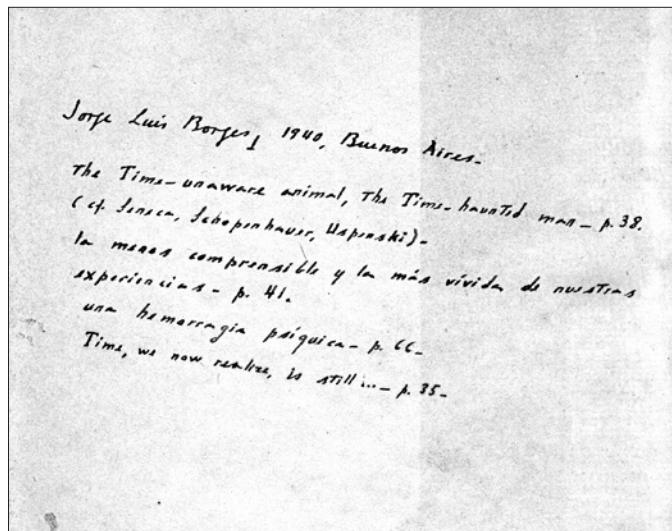 Jorge Luis Borges, 1940, Buenos Aires.
The Time-unaware animal, The Time-haunted man – p. 38.
(cf. Seneca, Schopenhauer, Uspenski).
la menos comprensible y la más vívida de nuestras
experiencias – p. 41.
una hemorragia psíquica – p. 66.
Time, we now realize, is still... – p. 35.